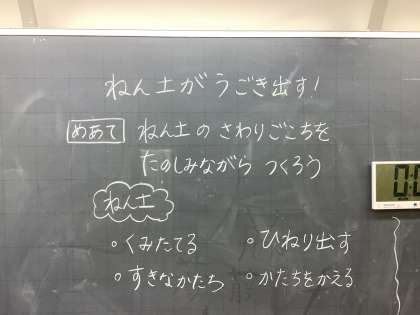 ねん土がうごき出す!
めあて ねん土の さわりごこちを
たのしみながら つくろう
ねん土
○くみたてる ○ひねり出す
○すきなかたち ○かたちをかえる